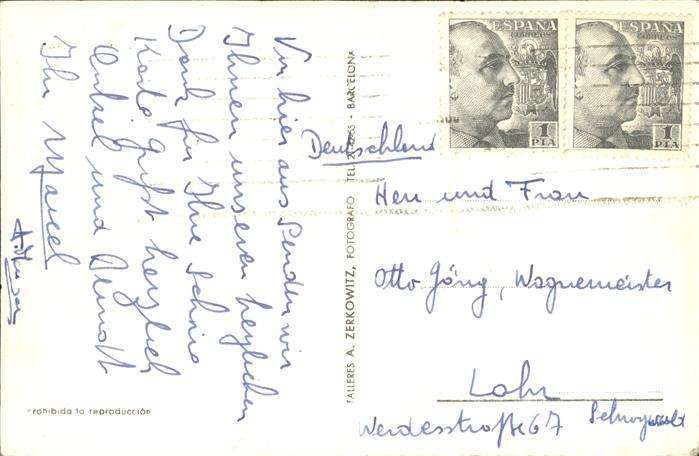 Von hier aus senden wir
Ihnen unseren herzlichen
Dank für Ihre schöne
Karte. Grüßt herzlich
und
Ihr Marcel
Prohibida la reproducción
TALLERES A. ZERKOWITZ, FOTOGRAFO - BARCELONA
ESPAÑA
CORREOS
1
PTA
ESPAÑA
CORREOS
1
PTA
Deutschland
Herr und Frau
Otto Göng, Wagnermeister
Lohr
Werdesstraße 67